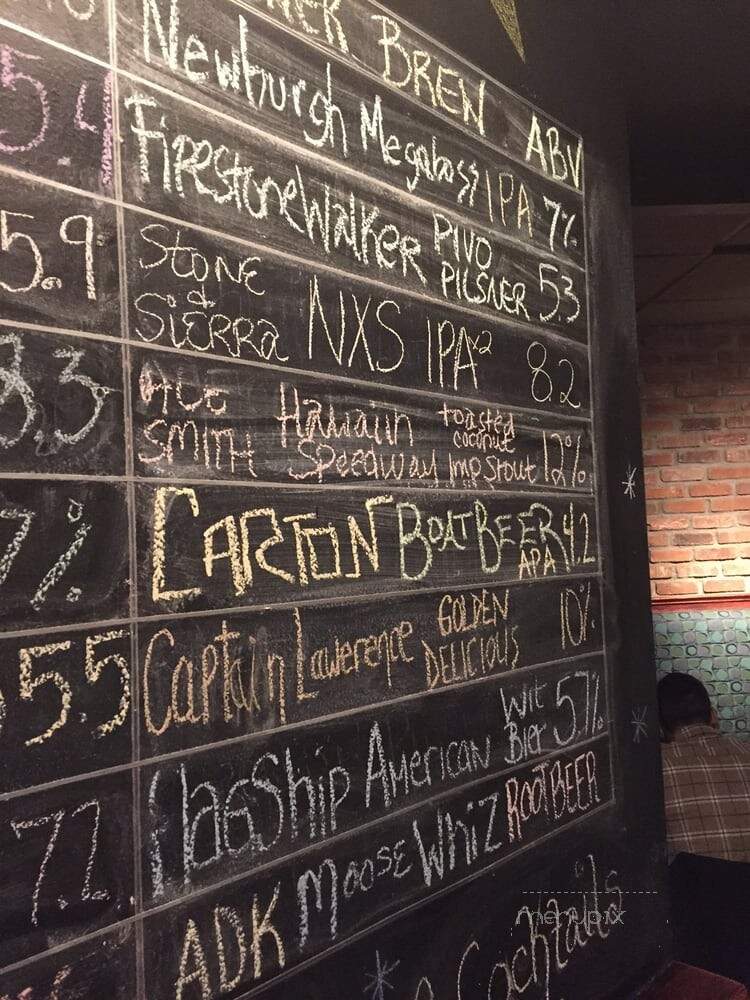 BREN ABV
Newburgh Megaboss IPA 7%
5.4
FirestoneWalker PIVO PILSNER 53
5.9
STONE & SIERRA NXS IPA x2 8.2
3.3
ALE SMITH Hawaiin Speedway toasted coconut Imp Stout 12%
7%
CARTON BOAT BEER APA 4.2
5.5
Captain Lawerence GOLDEN DELICIOUS 10%
FlagShip American Wit Bier 5.7%
7.2
ADK Moose Whiz ROOTBEER
Cocktails
menupix